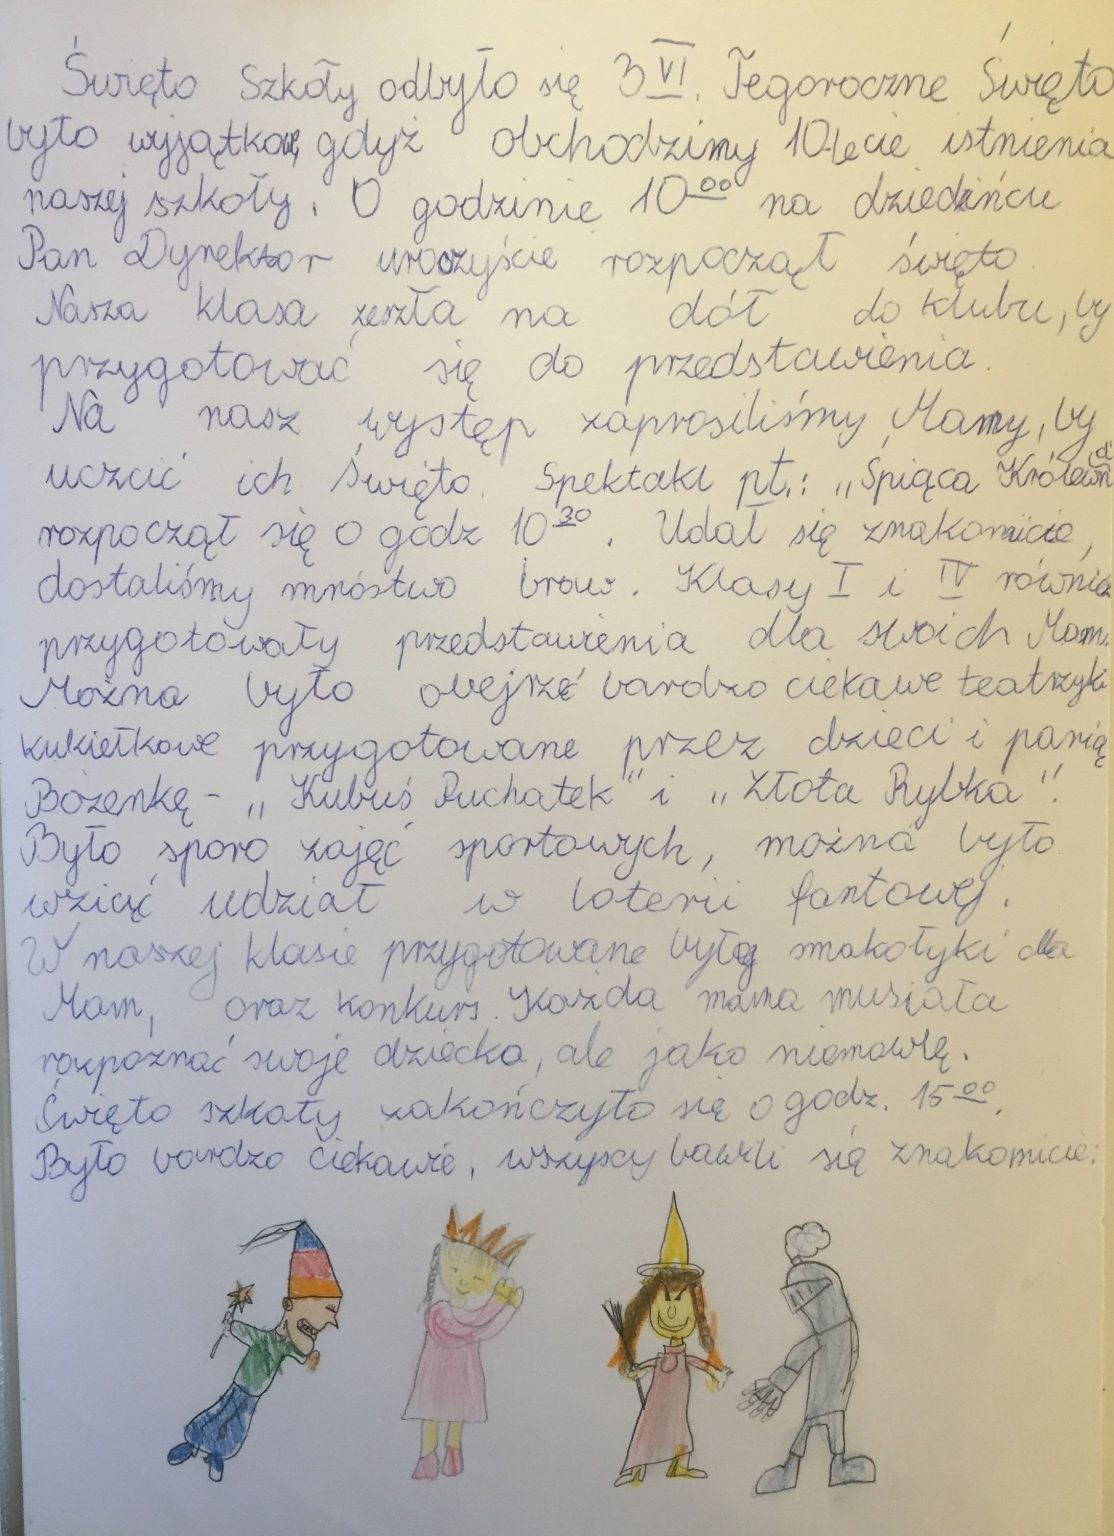 Święto Szkoły odbyło się 3 VI. Tegoroczne Święto
było wyjątkowe, gdyż obchodzimy 10-lecie istnienia
naszej szkoły. O godzinie 10⁰⁰ na dziedzińcu
Pan Dyrektor uroczyście rozpoczął święto.
Nasza klasa zeszła na dół do klubu, by
przygotować się do przedstawienia.
Na nasz występ zaprosiliśmy Mamy, by
uczcić ich Święto. Spektakl pt.: „Śpiąca Królewna
rozpoczął się o godz 10³⁰. Udał się znakomicie,
dostaliśmy mnóstwo braw. Klasy I i IV również
przygotowały przedstawienia dla swoich Mam.
Można było obejrzeć bardzo ciekawe teatrzyki
kukiełkowe przygotowane przez dzieci i panią
Bożenkę - „Kubuś Puchatek" i „Złota Rybka".
Było sporo zajęć sportowych, można było
wziąć udział w loterii fantowej.
W naszej klasie przygotowane były smakołyki dla
Mam, oraz konkurs. Każda mama musiała
rozpoznać swoje dziecko, ale jako niemowlę.
Święto szkoły zakończyło się o godz. 15⁰⁰.
Było bardzo ciekawie, wszyscy bawili się znakomicie.